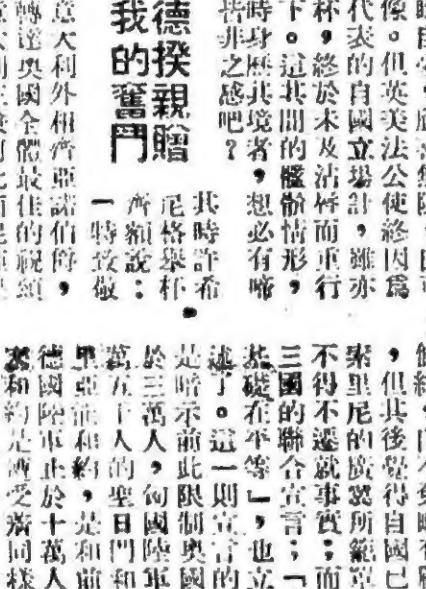 像。但英美法公使終因爲
代表的自國立場計，雖亦
杯，終於未及沾唇而重行
下。這其間的情形，
時身歷其境者，想必有啼
皆非之感吧？
德揆親贈
我的奮鬥
其時許希
尼格舉杯
齊額說：
一特致敬
意大利外相齊亞諾伯爵，
轉達奧國全體最佳的祝頌
，但其後覺得自國已
索里尼的廣翼所籠罩
不得不遷就事實；而
三國的聯合宣言；「
基礎在平等」，也立
述了。這一則宣言的
是暗示前此限制奧國
於三萬人，匈國陸軍
萬五千人的聖日門和
里亞和約，是和前
德國陸軍止於十萬人
塞和約是受着同樣